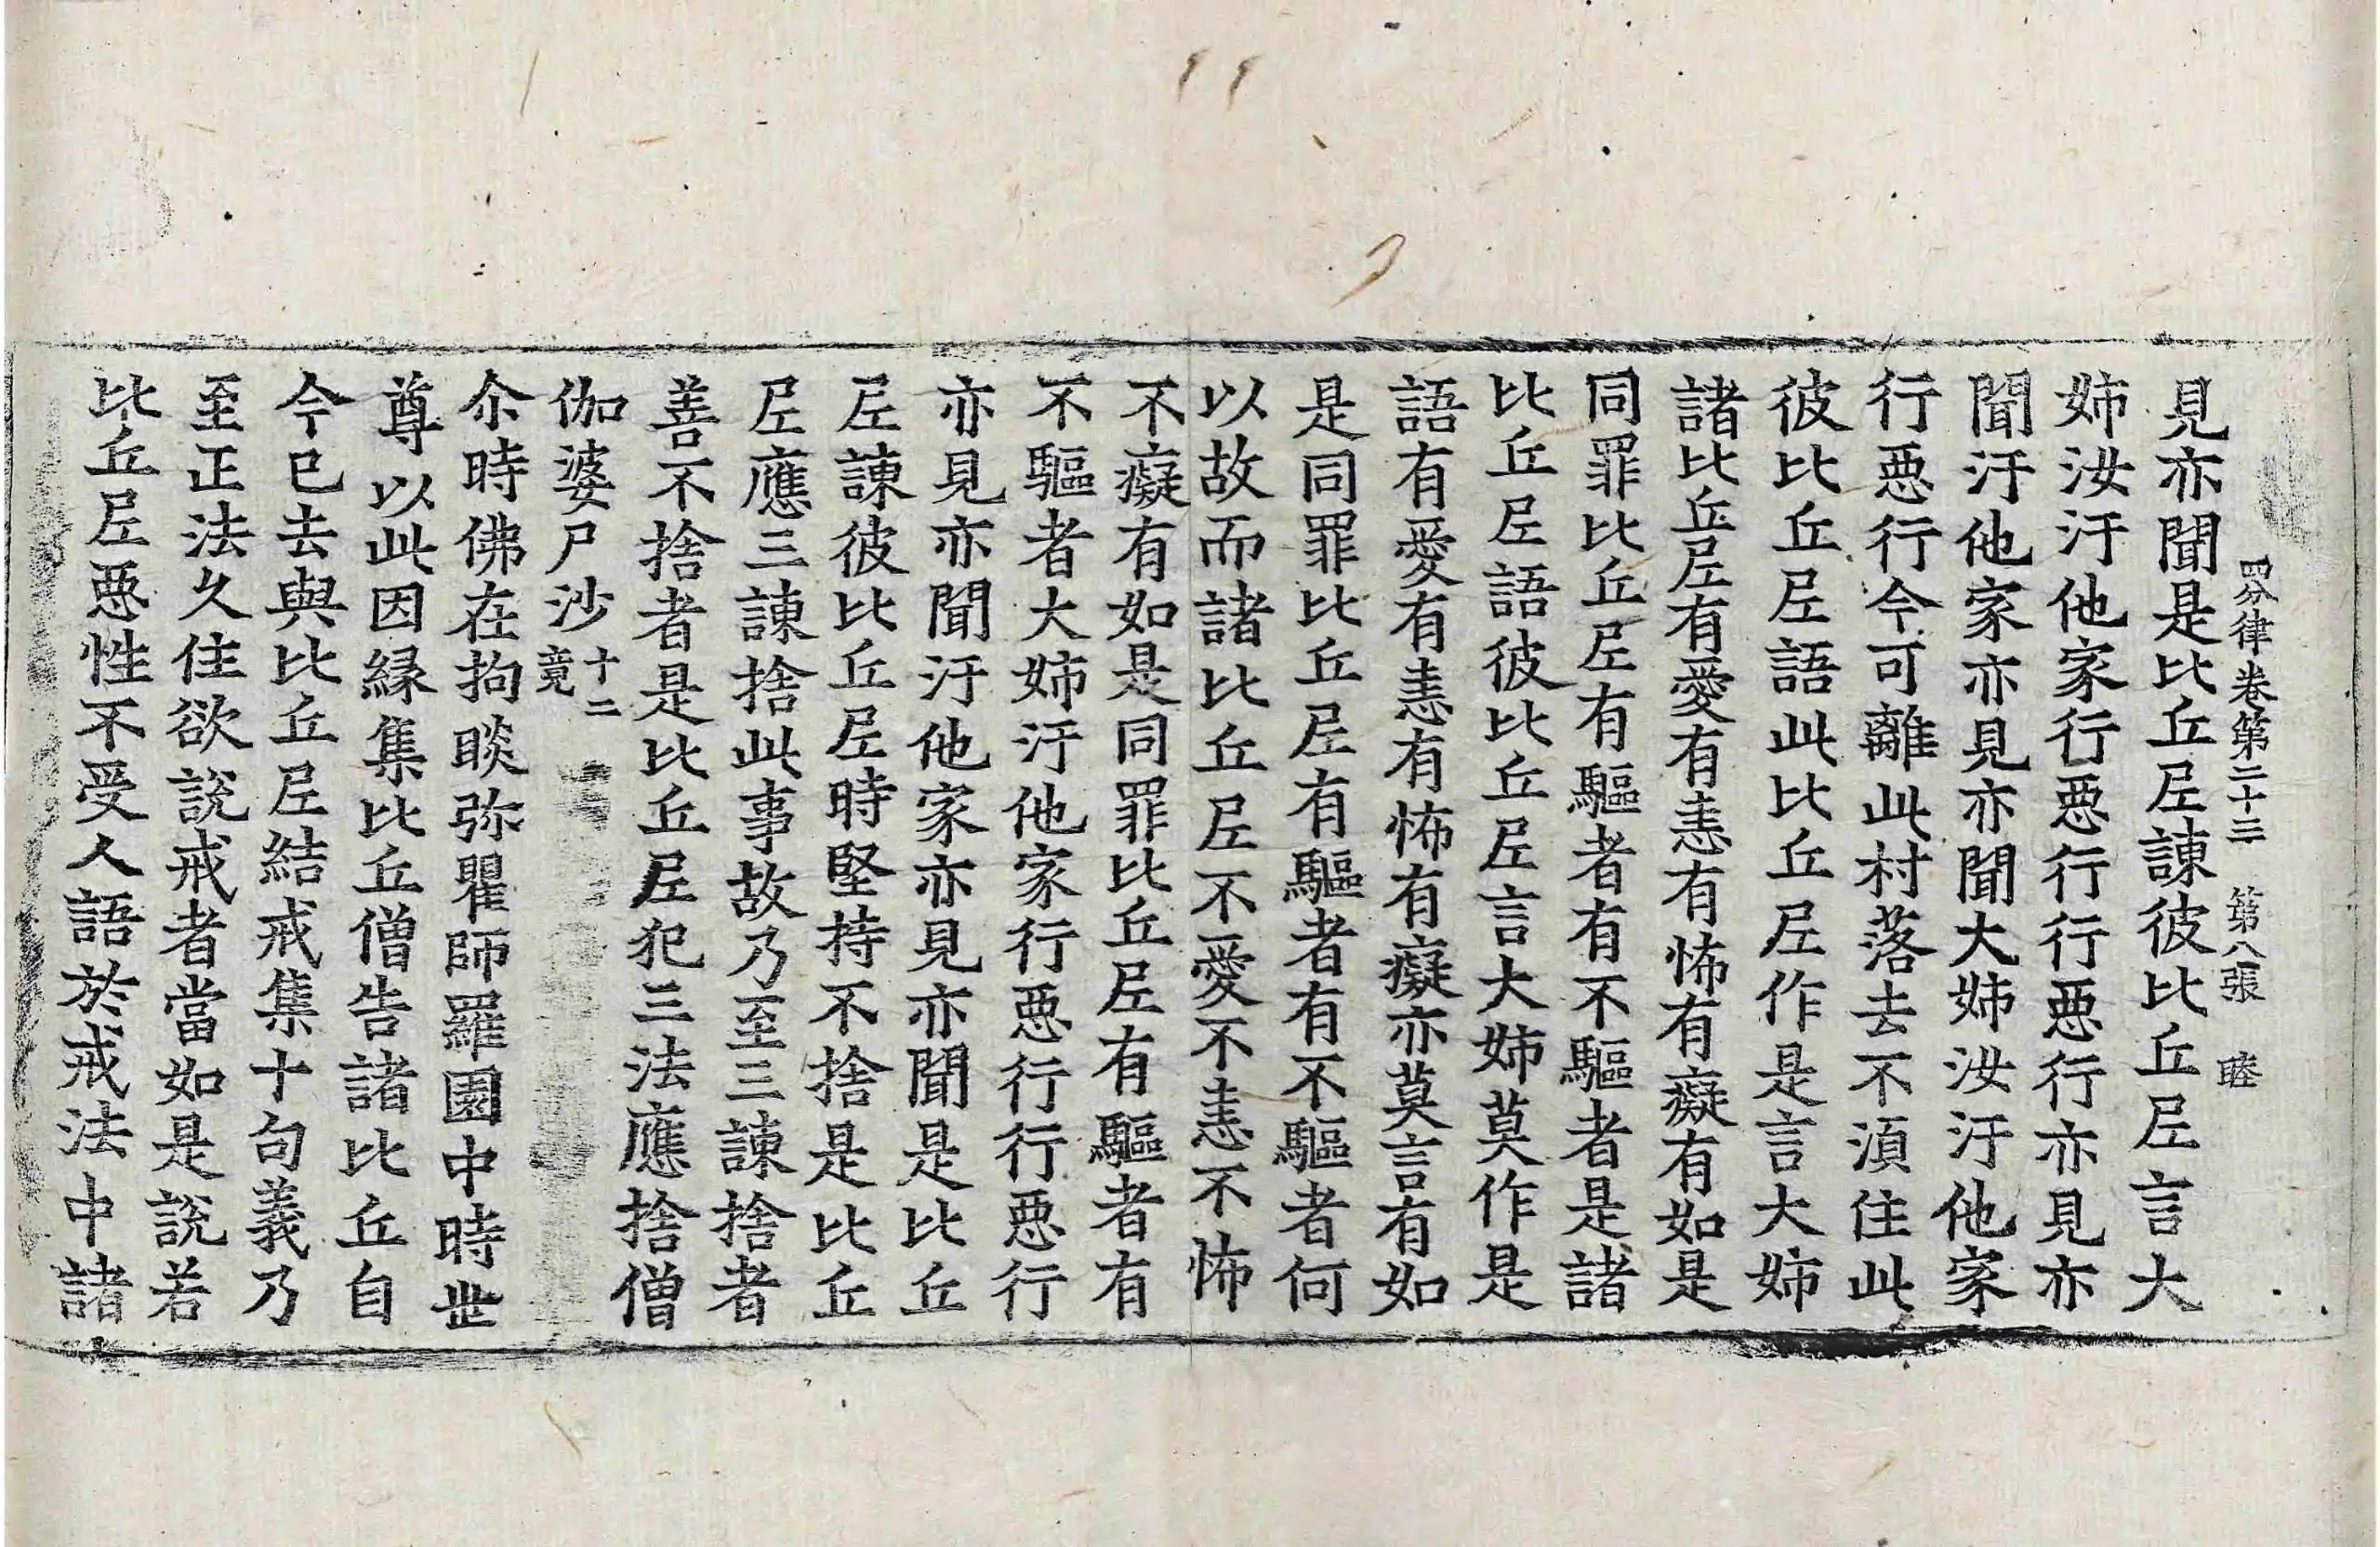 四分律卷第二十三 第八張 睦
見亦聞是比丘尼諫彼比丘尼言大
姉汝汙他家行惡行行惡行亦見亦
聞汙他家亦見亦聞大姉汝汙他家
行惡行今可離此村落去不須住此
彼比丘尼語此比丘尼作是言大姉
諸比丘尼有愛有恚有怖有癡有如是
同罪比丘尼有驅者有不驅者是諸
比丘尼語彼比丘尼言大姉莫作是
語有愛有恚有怖有癡亦莫言有如
是同罪比丘尼有驅者有不驅者何
以故而諸比丘尼不愛不恚不怖
不癡有如是同罪比丘尼有驅者有
不驅者大姉汙他家行惡行行惡行
亦見亦聞汙他家亦見亦聞是比丘
尼諫彼比丘尼時堅持不捨是比丘
尼應三諫捨此事故乃至三諫捨者
善不捨者是比丘尼犯三法應捨僧
伽婆尸沙十二竟
尒時佛在拘睒弥瞿師羅園中時世
尊以此因緣集比丘僧告諸比丘自
今已去與比丘尼結戒集十句義乃
至正法久住欲說戒者當如是說若
比丘尼惡性不受人語於戒法中諸